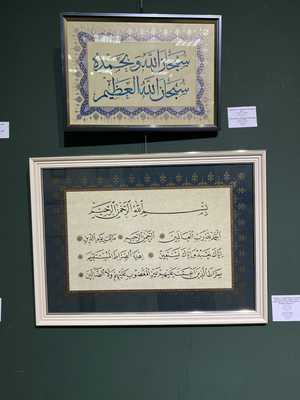 سبحان الله وبحمده
سبحان الله العظيم
بسم الله الرحمن الرحيم
الحمد لله رب العالمين الرحمن الرحيم مالك يوم الدين
إياك نعبد وإياك نستعين اهدنا الصراط المستقيم
صراط الذين أنعمت عليهم غير المغضوب عليهم ولا الضالين